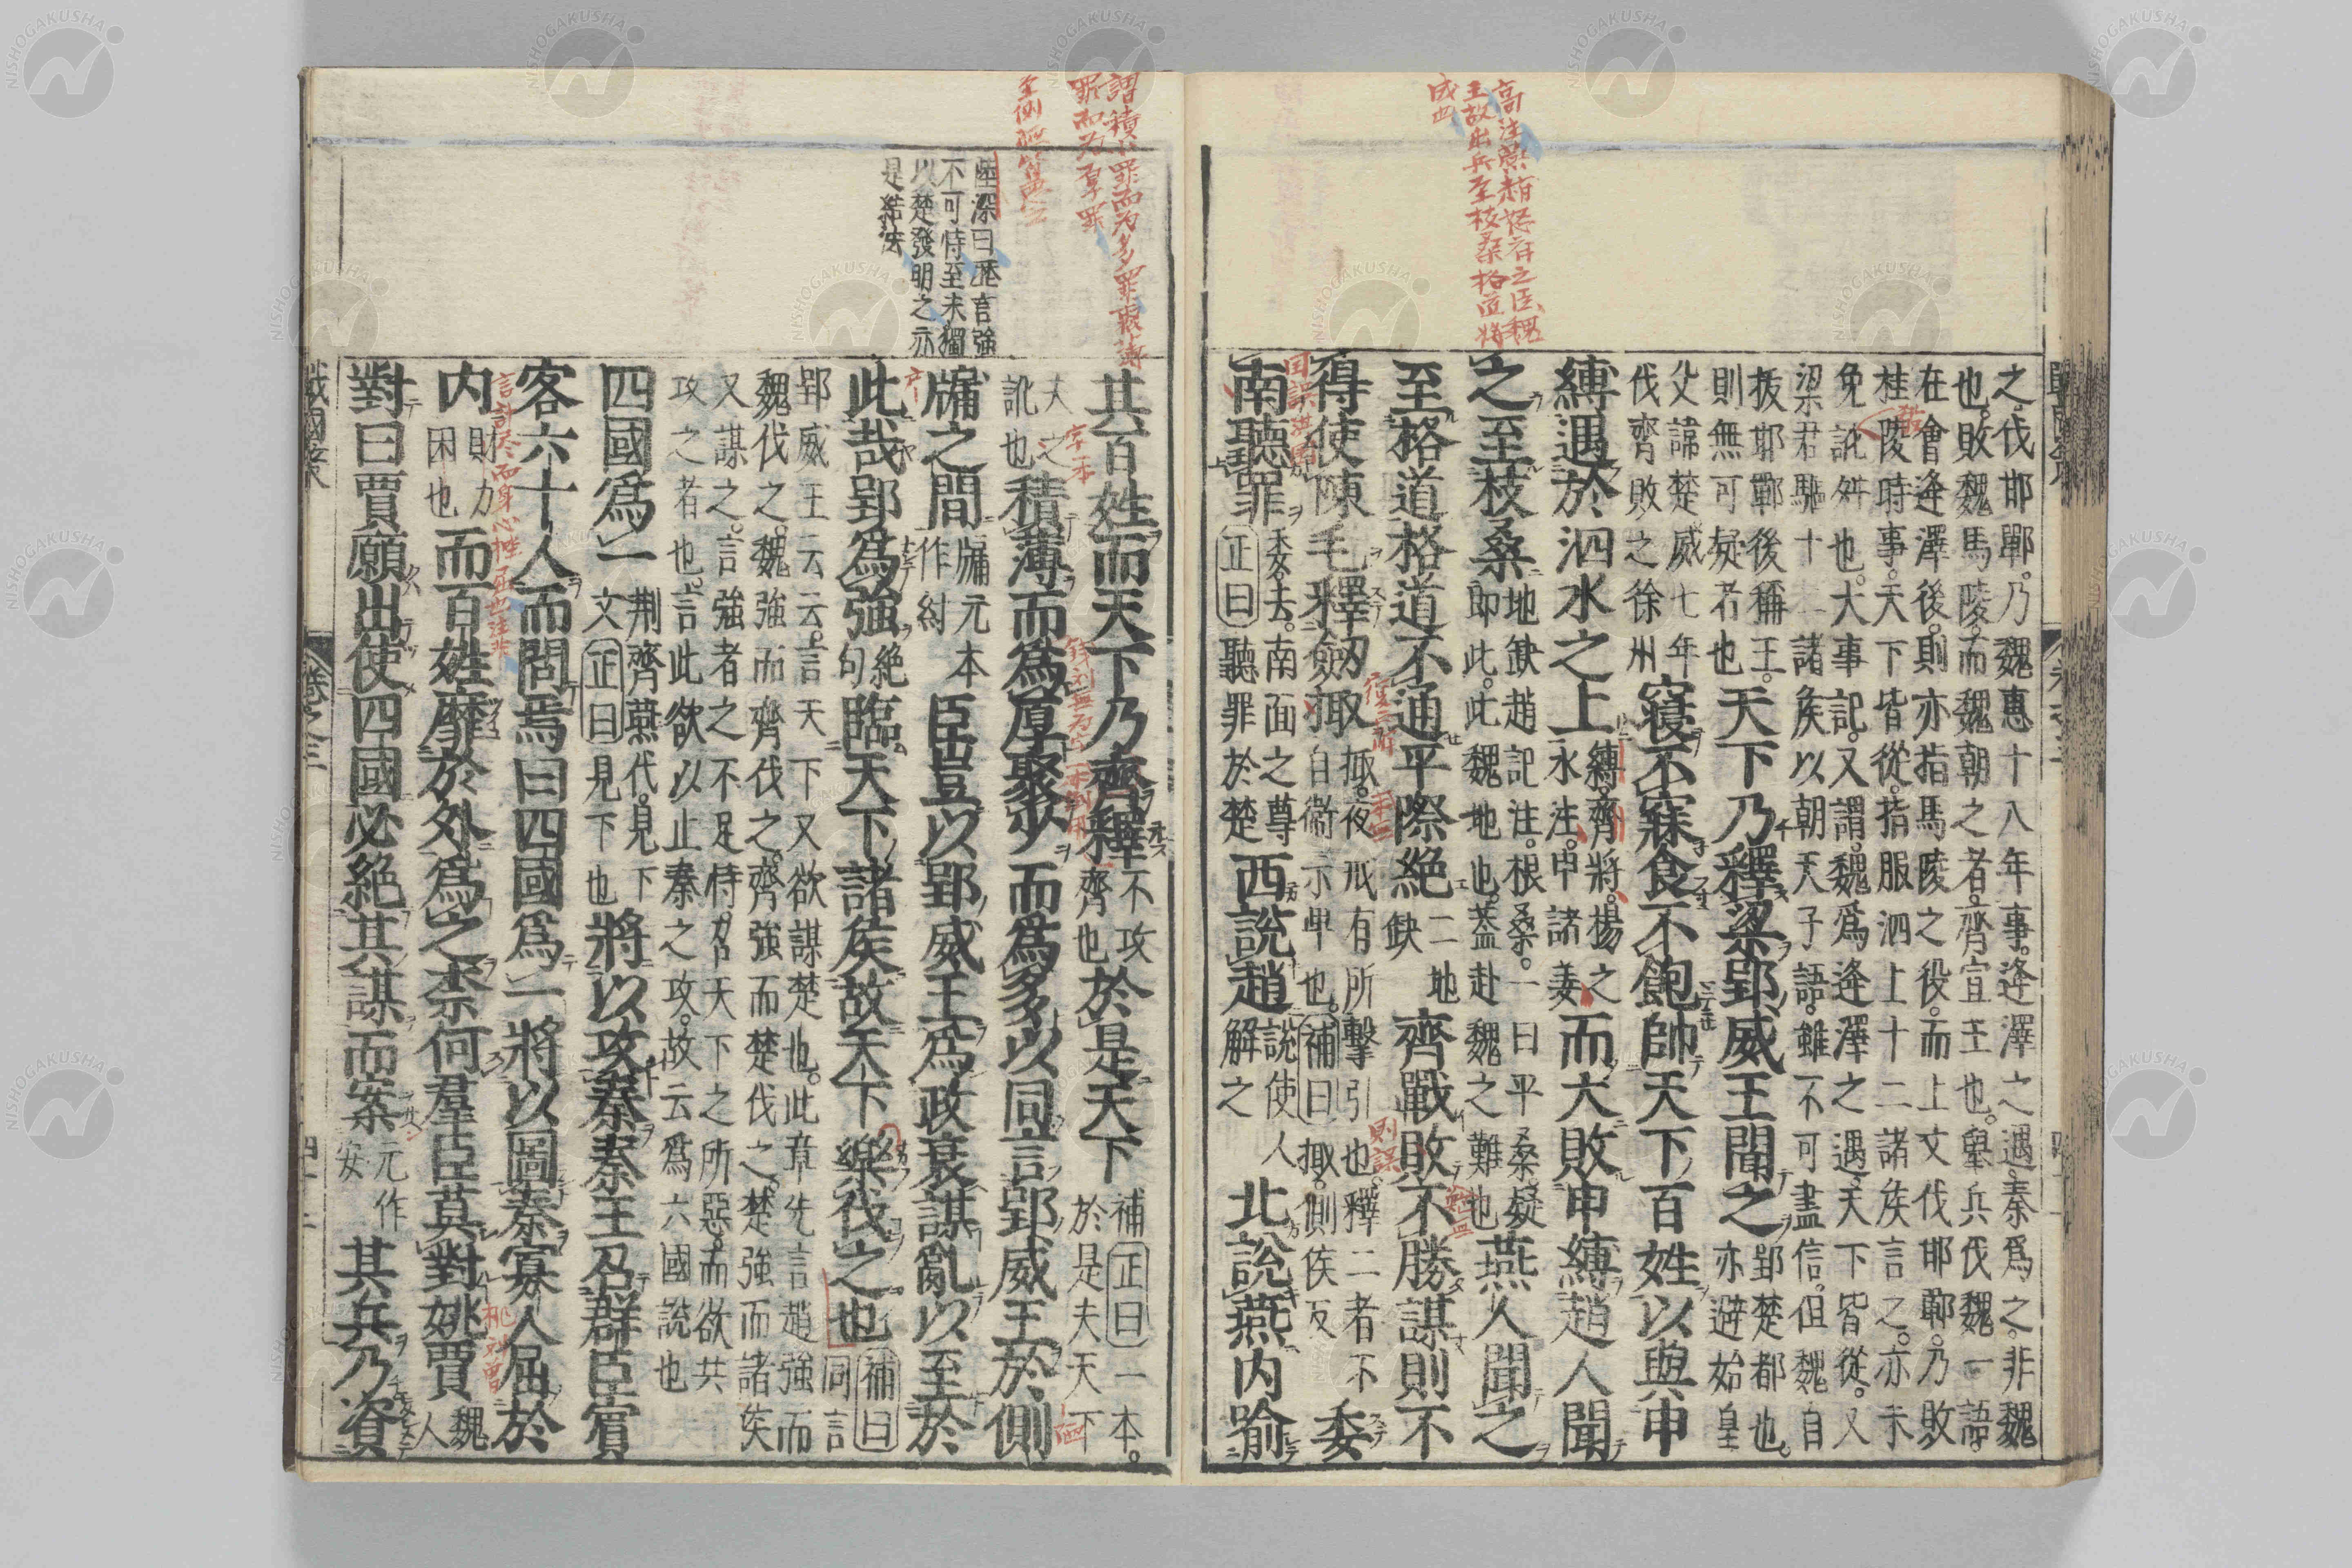 之伐邯鄲乃魏惠十八年事逢澤之遇秦爲之非魏
也敗魏馬陵而魏朝之者齊宣王也擧兵伐魏一語
在會逢澤後則亦指馬陵之役而上文伐邯鄲乃敗
桂陵時事天下皆從指服泗上十二諸侯言之亦未
免訛舛也大事記又謂魏爲逢澤之遇天下皆從又
梁君驅十二諸侯以朝天子語雖不可盡信但魏自
拔邯鄲後稱王天下乃釋梁郢威王聞之郢楚都也
則無可疑者也亦避始皇
父諱楚威七年
伐齊敗之徐州寢不寐食不飽帥天下百姓以與申
縛遇於泗水之上縛齊將楊之水注申諸姜而大敗申縛趙人聞
之至枝桑地缺趙記注根桑一曰平桑疑即此此魏地也蓋赴魏之難也燕人聞之
至格道格道不通平際絶二地缺齊戰敗不勝謀則不
得使陳毛釋劔掫掫夜戒有所擊引也釋二者不自衞示卑也補曰掫側侯反委
南聽罪委去南面之尊正曰聽罪於楚西說趙說使人解之北說燕内喻
其百姓而天下乃齊釋不攻齊也於是天下補正曰一本於是夫天下
訛也積薄而爲厚聚少而爲多以同言郢威王於側
牖之間牖元本作紂臣豈以郢威王爲政衰謀亂以至於
此哉郢爲強絶句臨天下諸侯故天下樂伐之也補曰同言
郢威王云云言天下又欲謀楚也此章先言趙強而
魏伐之魏強而齊伐之齊強而楚伐之楚強而諸侯
又謀之言強者之不足恃乃天下之所惡而欲共
攻之者也言此欲以止秦之攻故云爲六國說也
四國爲一荆齊燕代見下文正曰見下也將以攻秦秦王召群臣賓
客六十人而問焉曰四國爲一將以圖秦寡人屈於
内財力困也而百姓靡於外爲之柰何羣臣莫對姚賈魏人
對曰賈願出使四國必絶其謀而案元作安其兵乃資
陸深曰歷言強
不可恃至末獨
以楚發明之亦
是結法
戰國策
卷之三